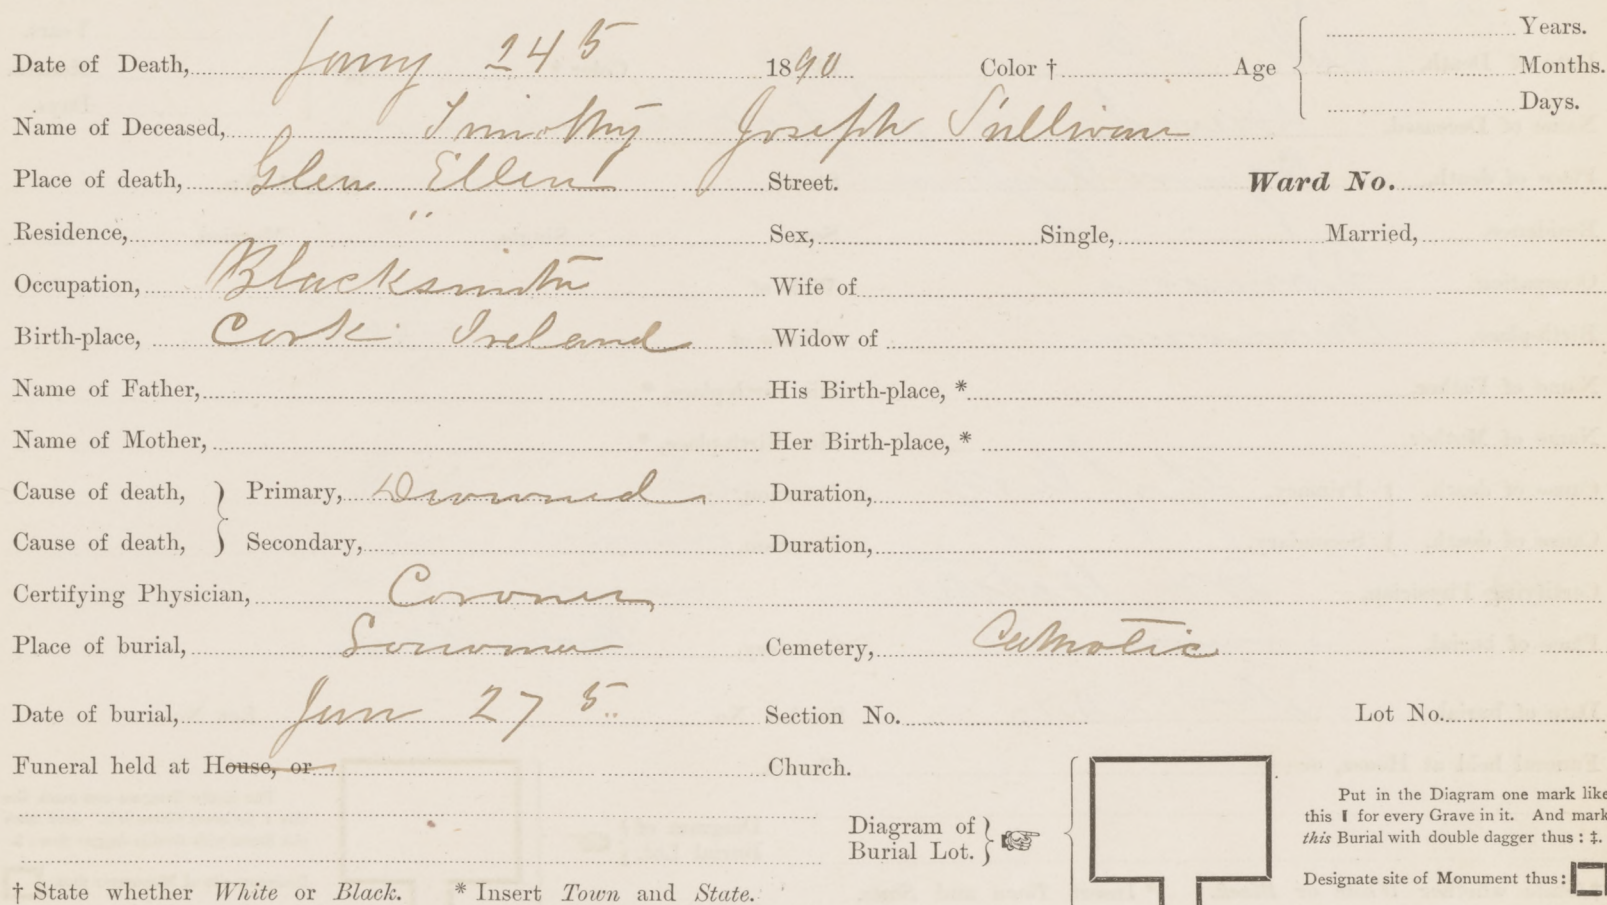 Date of Death, Jany 24 5 1890 Color † Age Years.
Months.
Days.
Name of Deceased, Timothy Joseph Sullivan
Place of death, Glen Ellen Street. Ward No.
Residence, " Sex, Single, Married,
Occupation, Blacksmith Wife of
Birth-place, Cork Ireland Widow of
Name of Father, His Birth-place, *
Name of Mother, Her Birth-place, *
Cause of death, } Primary, Drowned Duration,
Cause of death, } Secondary, Duration,
Certifying Physician, Coroner
Place of burial, Sonoma Cemetery, Catholic
Date of burial, Jan 27 5 Section No. Lot No.
Funeral held at House, or Church.
Diagram of
Burial Lot. }
Put in the Diagram one mark like
this I for every Grave in it. And mark
this Burial with double dagger thus : ‡.
Designate site of Monument thus :
† State whether White or Black. * Insert Town and State.